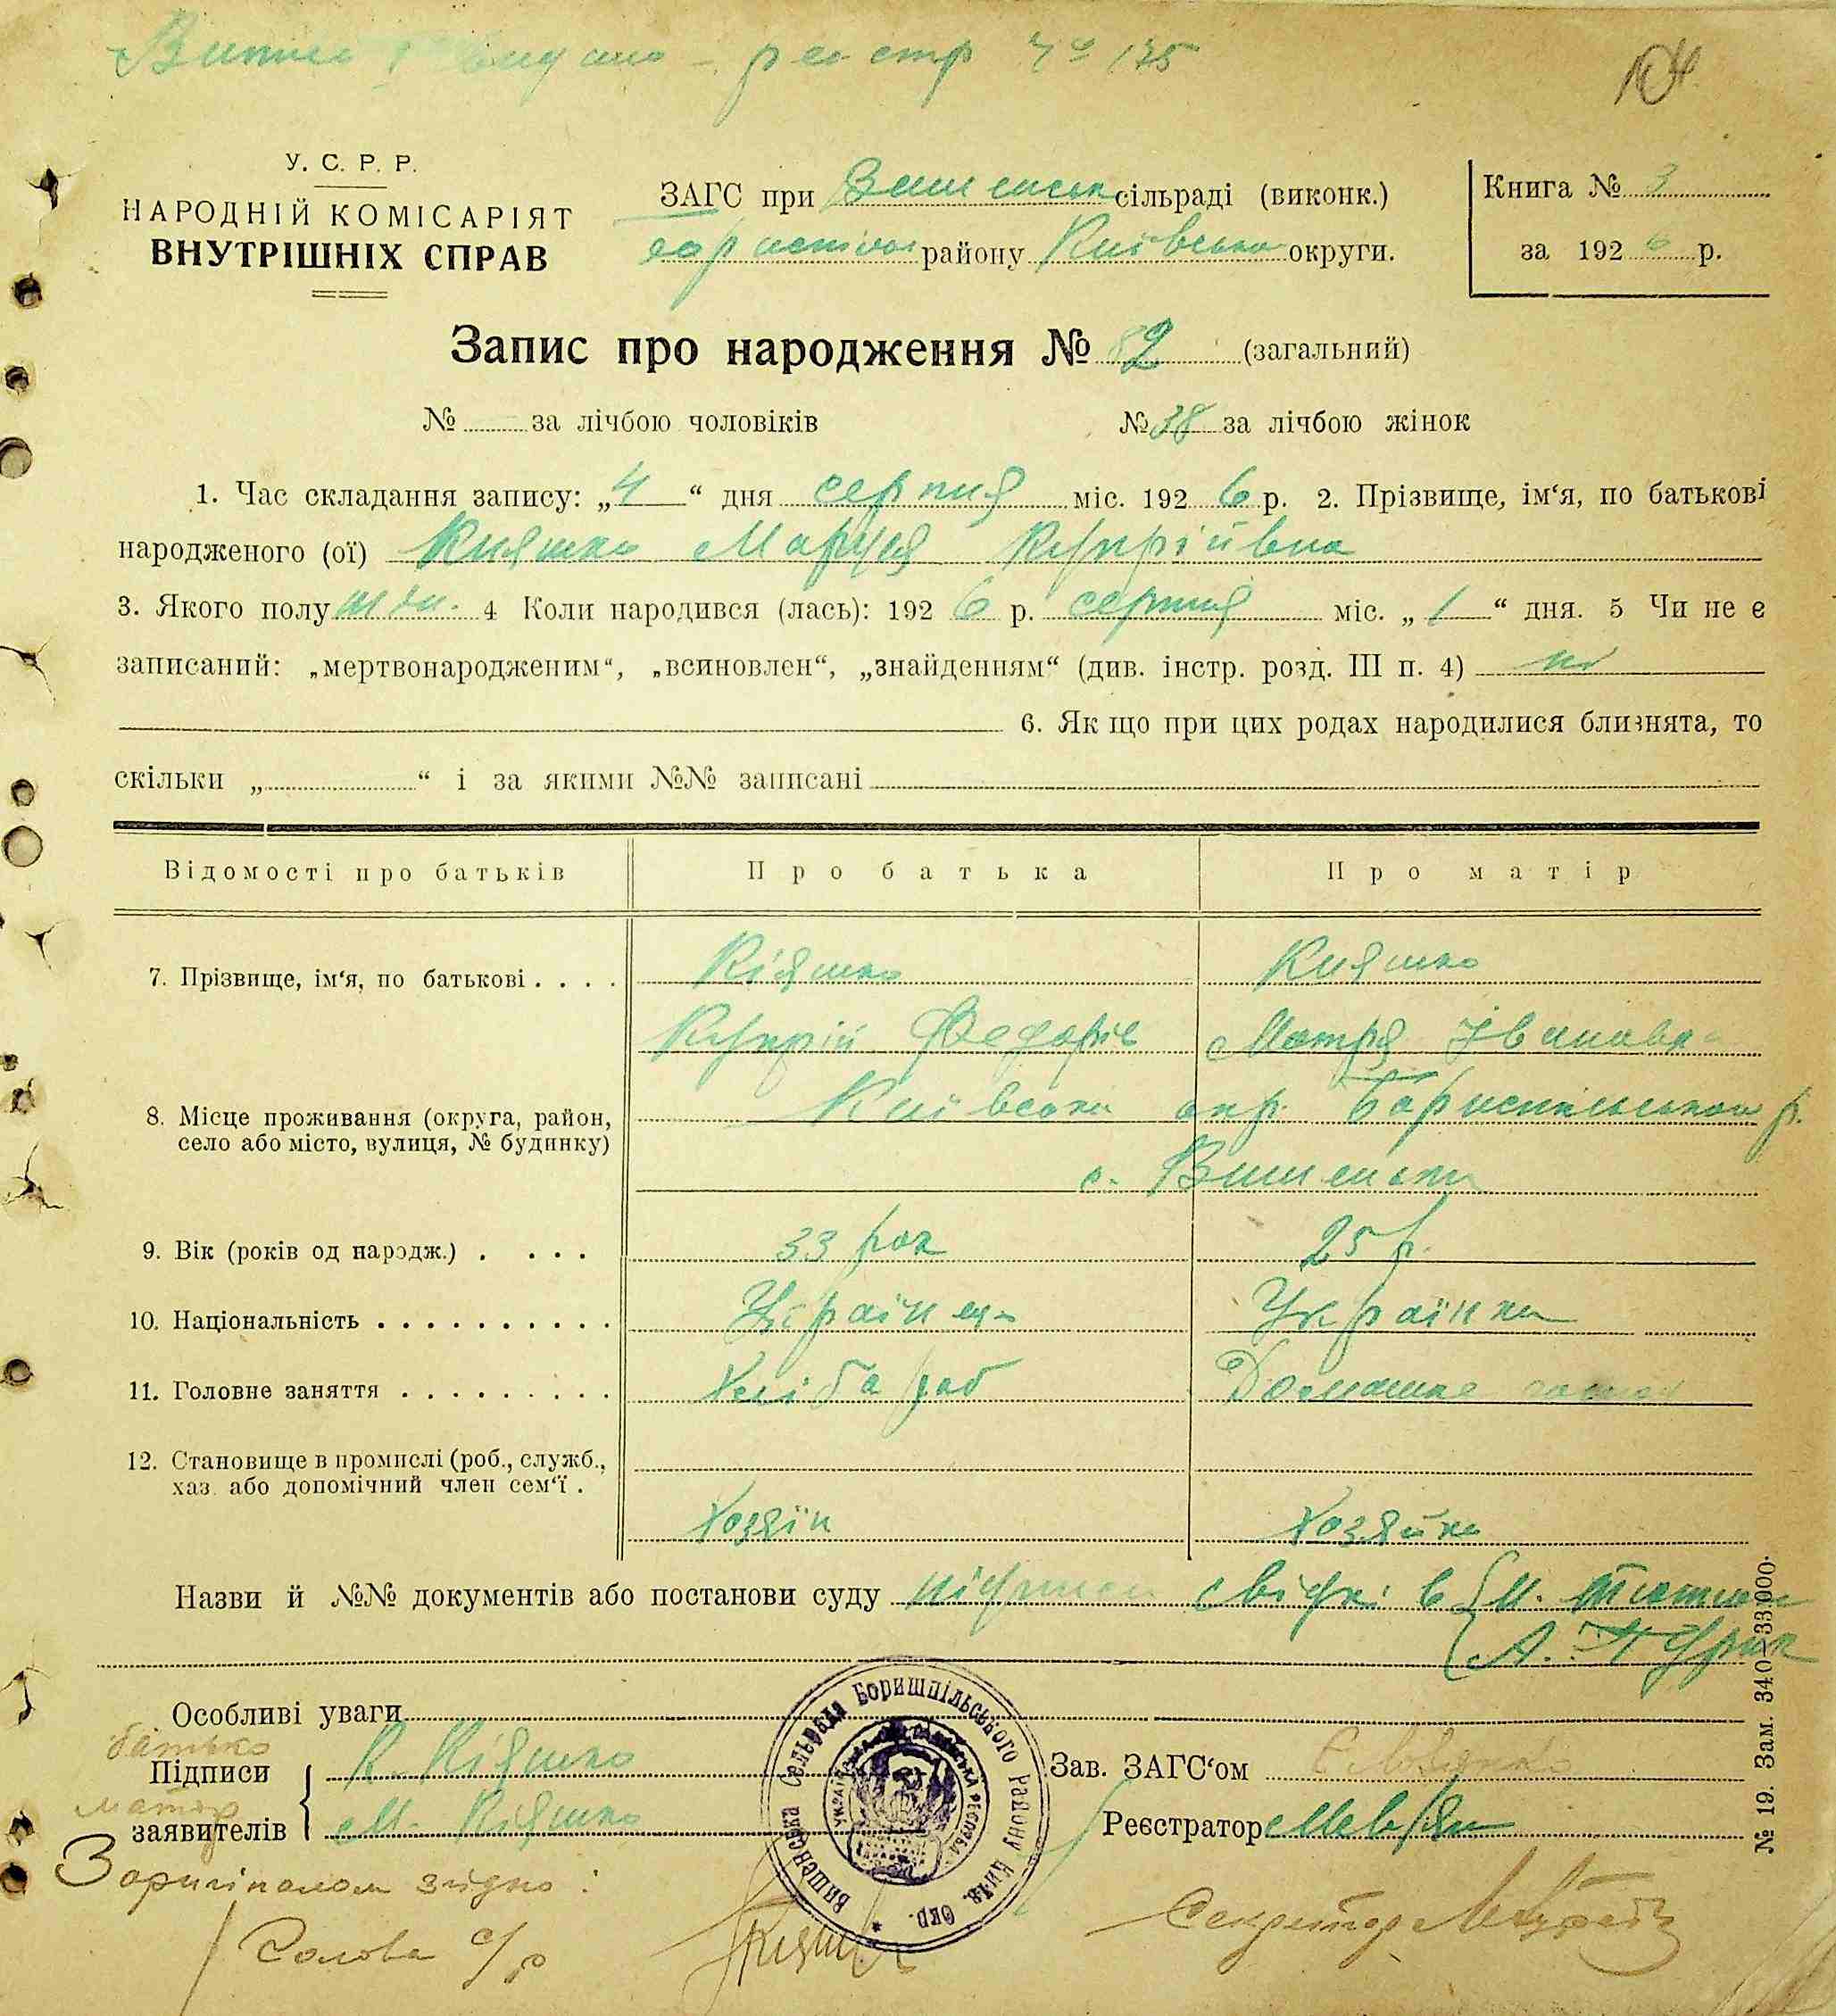 видано – реєстр № 135
104
У. С. Р. Р.
НАРОДНІЙ КОМІСАРІЯТ
ВНУТРІШНІХ СПРАВ
ЗАГС при Вишеньк сільраді (виконк.)
району Київської округи.
Книга № 3
за 1926 р.
Запис про народження № 82 (загальний)
№ за лічбою чоловіків
№ 38 за лічбою жінок
1. Час складання запису: „4“ дня серпня міс. 1926 р. 2. Прізвище, ім‘я, по батькові
народженого (ої) Кияшко Маруся Купріївна
3. Якого полу жін. 4 Коли народився (лась): 1926 р. серпня міс. „1“ дня. 5 Чи не є
записаний: „мертвонародженим“, „всиновлен“, „знайденням“ (див. інстр. розд. III п. 4) ні
6. Як що при цих родах народилися близнята, то
скільки „ “ і за якими №№ записані
Відомості про батьків Про батька Про матір
7. Прізвище, ім‘я, по батькові . . . . Кіяшко Кияшко
Купрій Федорів Мотря Івановна
8. Місце проживання (округа, район, Київської окр. Бориспільського р.
село або місто, вулиця, № будинку)
с. Вишеньки
9. Вік (років од народж.) . . . . 33 рок 25 р.
10. Національність . . . . . . . . . . Українець Українка
11. Головне заняття . . . . . . . . . Хлібароб Домашнє
12. Становище в промислі (роб., служб.,
хаз. або допомічний член сем‘ї .
Хозяїн Хозяйка
Назви й №№ документів або постанови суду підписи свідків М.
А.
Особливі уваги
батько
Підписи К. Кіяшко
матір
заявителів М. Кіяшко
Зав. ЗАГС‘ом
Реєстратор
Вишенська Сельрада Боришпільського Району Київ. Окр.
№ 19. Зам. 340–33.000.
З оригіналом згідно:
Голова с/р
Секретар